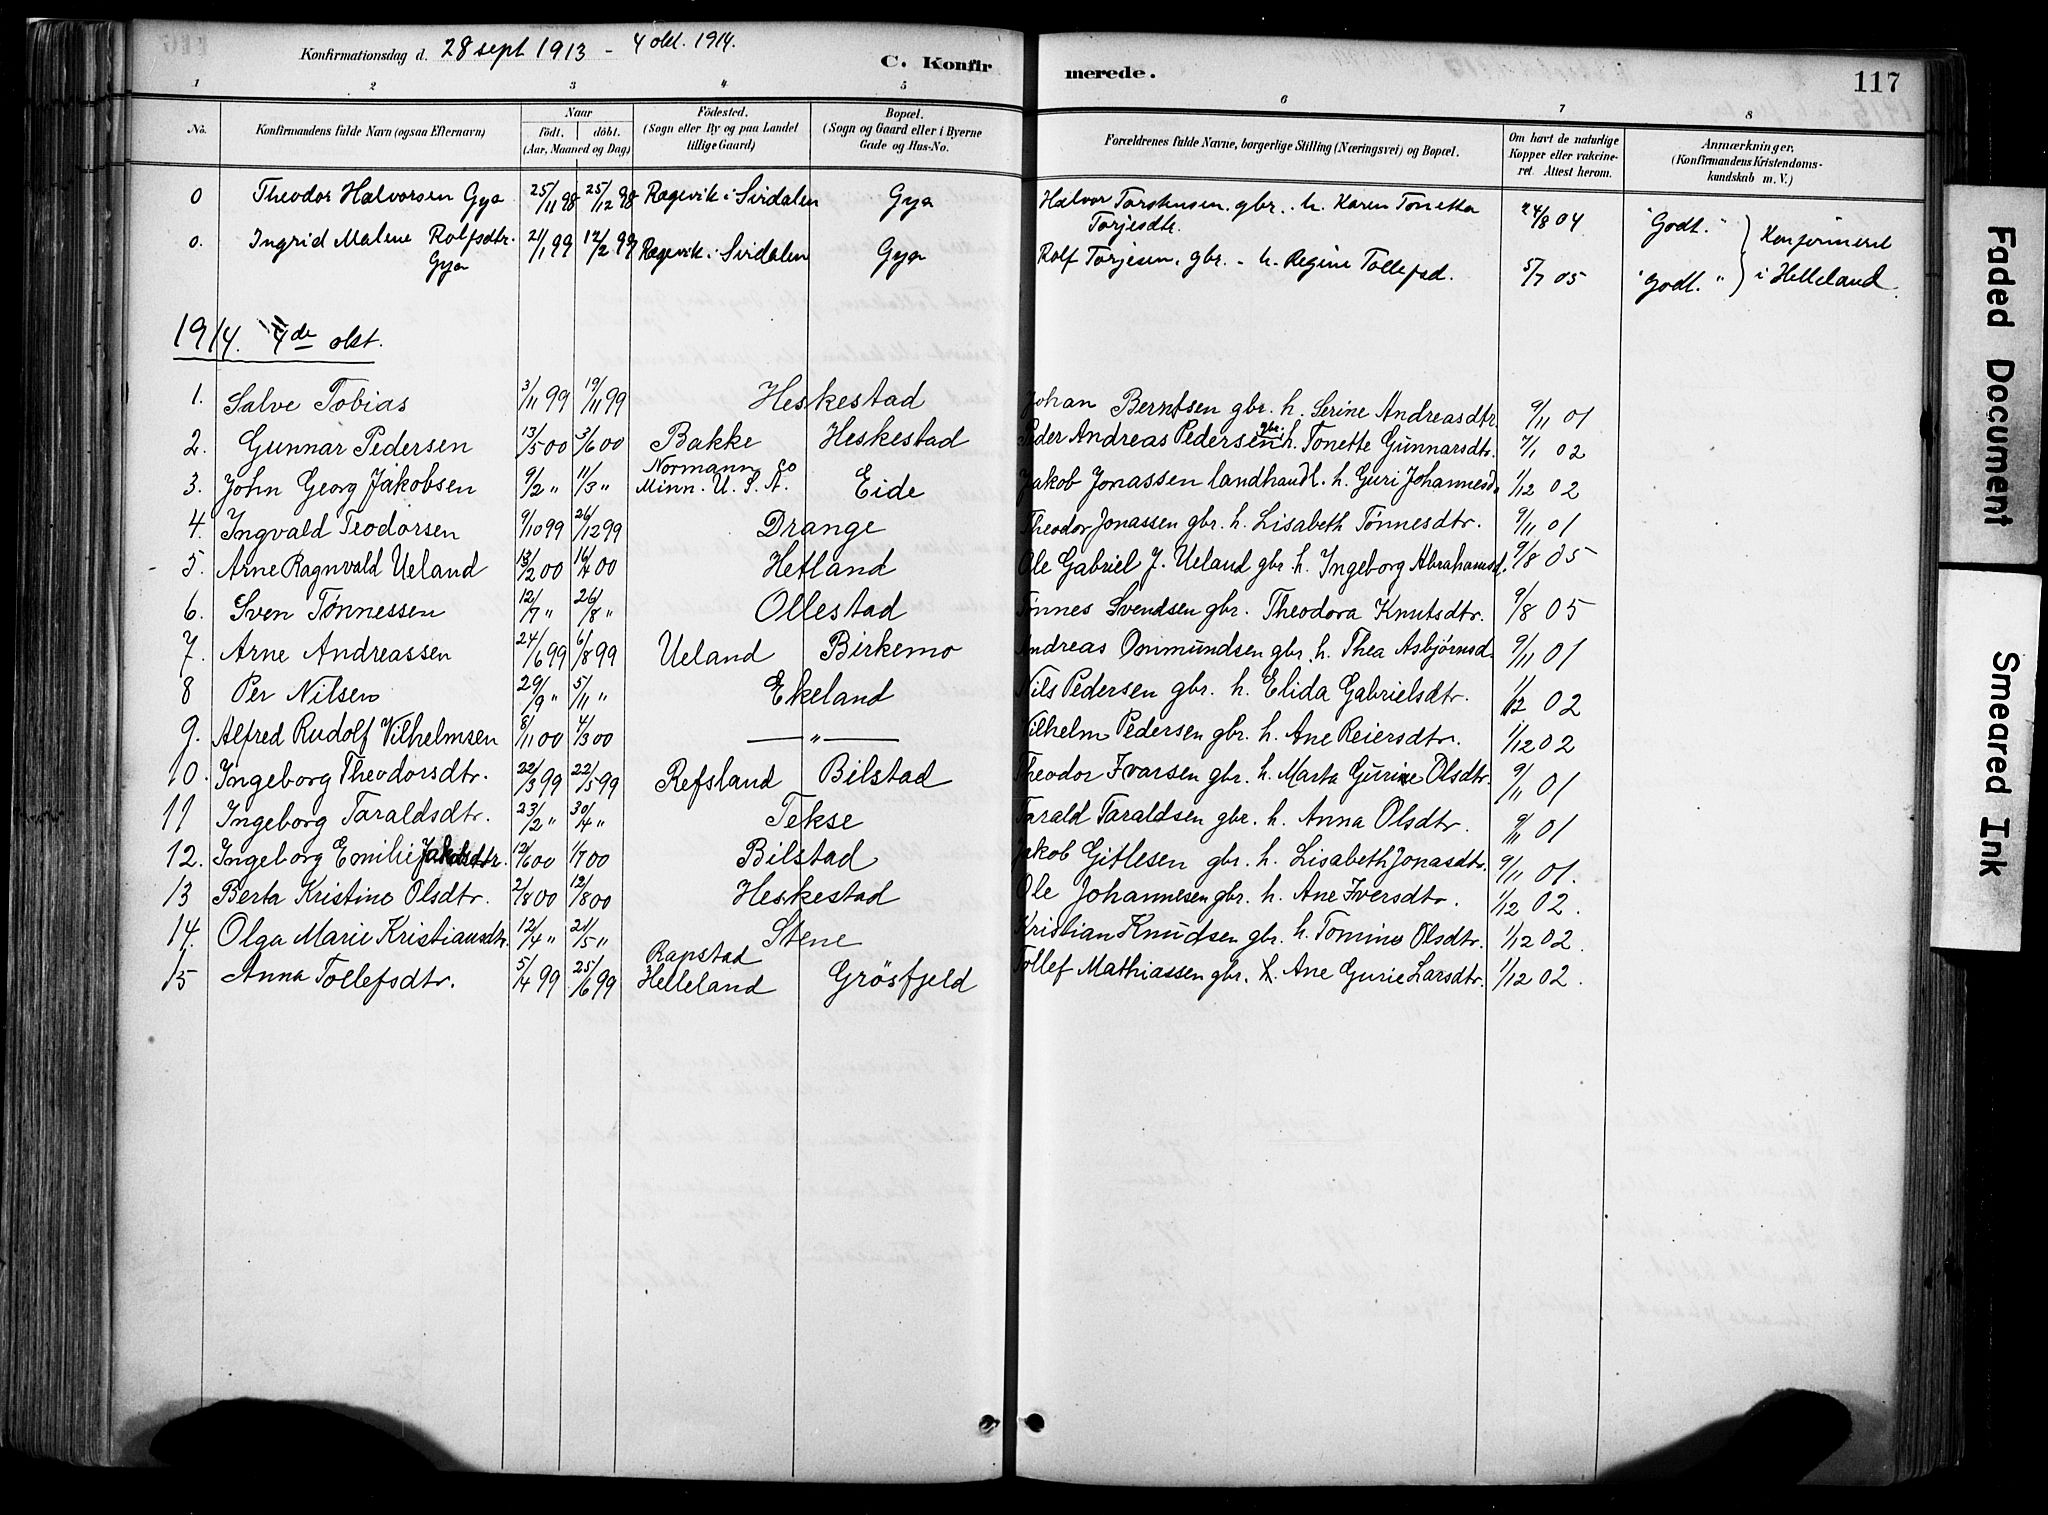 Konfirmationsdag d. 28 sept 1913 - 4 okt. 1914.
C. Konfir merede. 117
1 2 3 4 5 6 7 8
No. Konfirmandens fulde Navn (ogsaa Efternavn) Naar født. døbt. (Aar, Maaned og Dag) Fødested. (Sogn eller By og paa Landet tillige Gaard) Bopæl. (Sogn og Gaard eller i Byerne Gade og Hus-No. Forældrenes fulde Navne, borgerlige Stilling (Næringsvei) og Bopæl. Om havt de naturlige Kopper eller vakcineret. Attest herom. Anmærkninger, (Konfirmandens Kristendomskundskab m. V.)
0 Theodor Halvorsen Gya 25/11 98 25/12 98 Ragevik i Sirdalen Gya Halvor Torstensen. gbr. h. Karen Tonetta Torjesdtr. 24/8 04 "Godt."
0. Ingrid Malene Rolfsdtr. Gya 21/1 99 12/2 99 Ragevik i Sirdalen Gya Rolf Torjesen, gbr. - h. Regine Tollefsd. 5/7 05 "Godt." Konfirmeret i Helleland.
1914. 4de okt.
1. Salve Tobias 3/11 99 19/11 99 Heskestad Johan Berntsen gbr. h. Serine Andreasdtr. 9/11 01
2. Gunnar Pedersen 13/5 00 3/6 00 Bakke Heskestad Peder Andreas Pedersen gbr. h. Tonette Gunnarsdtr. 7/1 02
3. John Georg Jakobsen 9/2 " 11/3 " Normann co Minn. U. S. A. Eide Jakob Jonassen landhandl. h. Guri Johannesd. 1/12 02
4. Ingvald Teodorsen 9/10 99 26/12 99 Drange Theodor Jonassen gbr. h. Lisabeth Tønnesdtr. 9/11 01
5. Arne Ragnvald Ueland 13/2 00 16/4 00 Hetland Ole Gabriel J. Ueland gbr. h. Ingeborg Abrahamsd. 9/8 05
6. Sven Tønnessen 12/7 " 26/8 " Ollestad Tønnes Svendsen gbr. Theodora Knutsdtr. 9/8 05
7. Arne Andreassen 24/6 99 6/8 99 Ueland Birkemo Andreas Onmundsen gbr. h. Thea Asbjørnsd. 9/11 01
8 Per Nilsen 29/9 " 5/11 " Ekeland Nils Pedersen gbr. h. Elida Gabrielsdtr. 1/12 02
9. Alfred Rudolf Vilhelmsen 8/11 00 4/3 00 — " — Vilhelm Pedersen gbr. h. Ane Reiersdtr. 1/12 02
10. Ingeborg Theodorsdtr. 22/3 99 22/5 99 Refsland Bilstad Theodor Ivarsen gbr. h. Marta Gurine Olsdtr. 9/11 01
11 Ingeborg Taraldsdtr. 23/2 " 30/4 " Tekse Tarald Taraldsen gbr. h. Anna Olsdtr. 9/11 01
12. Ingeborg Emilie Jakobsdtr. 12/6 00 1/7 00 Bilstad Jakob Gitlesen gbr. h. Lisabeth Jonasdtr. 9/11 01.
13 Berta Kristine Olsdtr. 2/8 00 12/8 00 Heskestad Ole Johannesen gbr. h. Ane Iversdtr. 1/12 02.
14. Olga Marie Kristiansdtr. 12/4 " 21/5 " Stene Kristian Knudsen gbr. h. Tomine Olsdtr. 1/12 02.
15 Anna Tollefsdtr. 5/4 99 25/6 99 Rapstad Helleland Grøsfjeld Tollef Mathiassen gbr. h. Ane Gurie Larsdtr. 1/12 02.
Faded Document
Smeared Ink